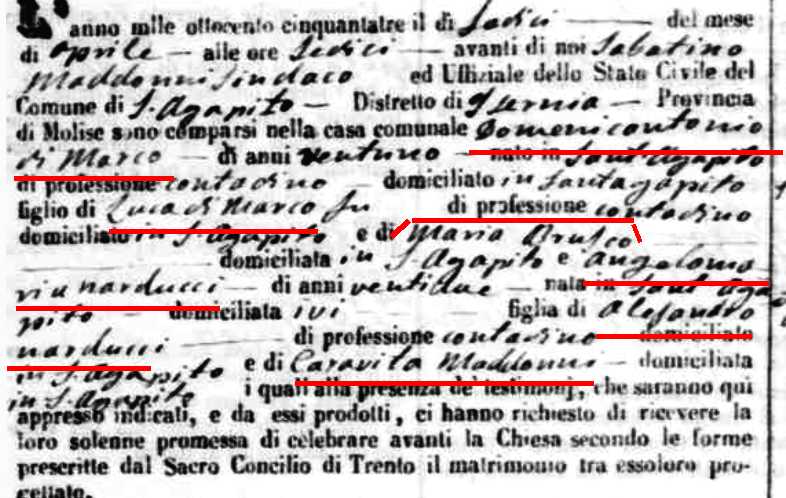 L' anno mille ottocento cinquantatre il dì Sedici del mese
di Aprile — alle ore Sedici — avanti di noi Sabatino
Maddonni Sindaco ed Uffiziale dello Stato Civile del
Comune di S. Agapito — Distretto di Isernia — Provincia
di Molise sono comparsi nella casa comunale Domenicantonio
di Marco — di anni ventuno — nato in Sant Agapito
di professione contadino — domiciliato in Santagapito
figlio di Luca di Marco fu di professione contadino
domiciliato in S. Agapito e di Maria Brusco
domiciliata in S. Agapito e Angeloma
ria narducci — di anni ventidue — nata in Sant Aga
pito — domiciliata ivi figlia di Alesandro
narducci di professione contadino — domiciliato
in S. Agapito e di Caravita Maddonni — domiciliata
in S. Agapito i quali alla presenza de' testimonj, che saranno qui
appresso indicati, e da essi prodotti, ci hanno richiesto di ricevere la
loro solenne promessa di celebrare avanti la Chiesa secondo le forme
prescritte dal Sacro Concilio di Trento il matrimonio tra essoloro pro-
gettato.